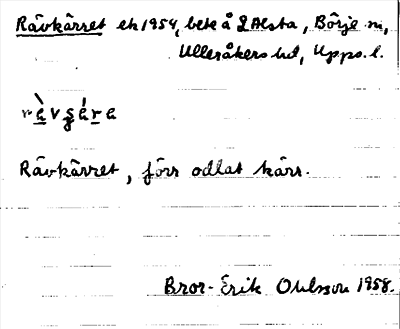 Rävkärret ek 1954, bete å 2 Alsta, Börje sn,
Ulleråkers hd, Upps. l.
rὲvʂɛ́ra
Rävkärret, förr odlat kärr.
Bror-Erik Ohlsson 1958.